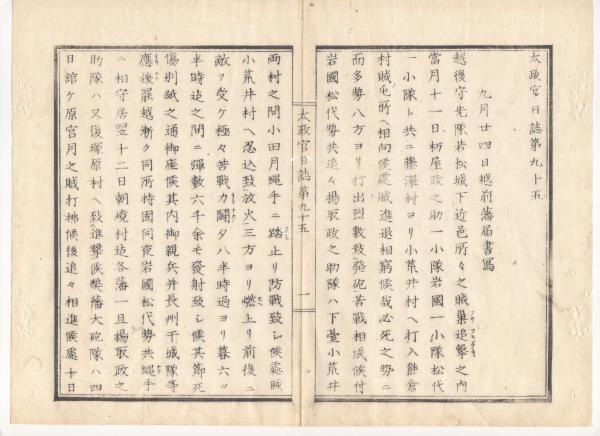 太政官日誌第九十五
九月廿四日越前藩届書寫
越後守先隊若松城下近邑所々之賊巢追撃之內
當月十一日栃屋政之助一小隊岩國一小隊松代
一小隊ト共ニ藤澤村ヨリ小荒井村ヘ打入熊倉
村賊屯所ヘ相向候處賊進退相窮候哉必死之勢ニ
而多勢八方ヨリ打出烈敷致發砲苦戰相成候付
岩國松代勢共追々揚取政之助隊ハ下臺小荒井
太政官日誌第九十五
一
兩村之間小田月繩手ニ踏止リ防戰致シ候處賊
小荒井村ヘ忍込致放火三方ヨリ燃上リ前後ニ
敵ヲ受ケ極々苦戰力鬪夕八半時過ヨリ暮六ツ
半時迠之間ニ彈數六千余モ發射致シ候其節死
傷別紙之通御座候其內御親兵并長州干城隊等
應後罷越漸ク同所持固同夜岩國松代勢共繩手
ニ相守居翌十二日朝境村迠各藩一且揚取政之
助隊ハ又復塚原村ヘ致進撃候弊藩大砲隊ハ四
日舘ケ原宮月之賊打拂候後追々相進候處十日